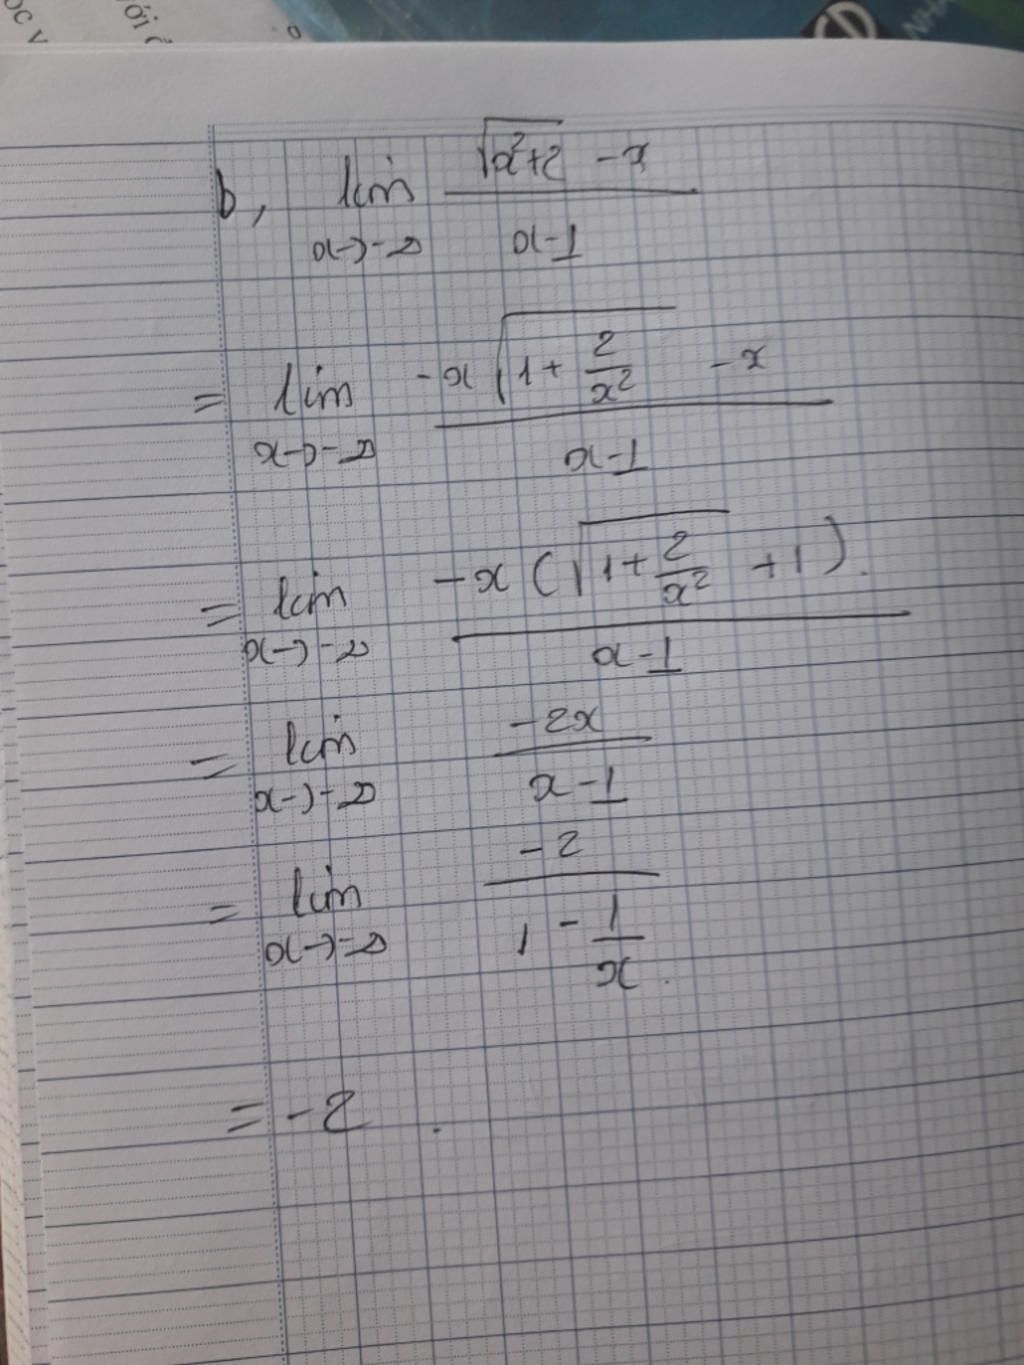 b, lim √(x²+2) - x / x-1
x→-∞
= lim -x√(1+2/x²) - x / x-1
x→-∞
= lim -x(√(1+2/x²) +1). / x-1
x→-∞
= lim -2x / x-1
x→-∞
= lim -2 / 1 - 1/x.
x→-∞
= -2.